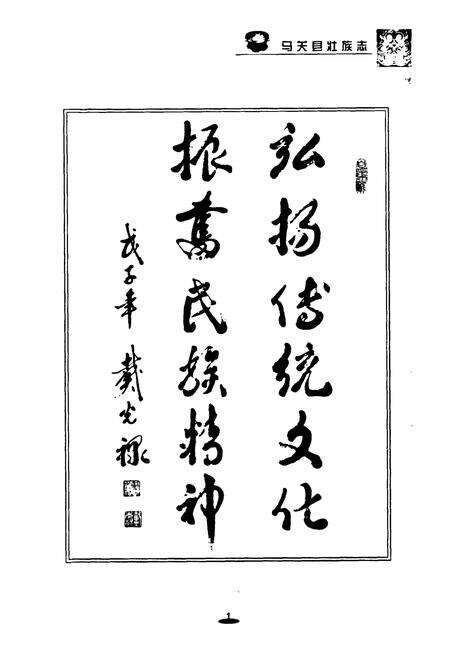 马关县壮族志
弘扬传统文化
振奮民族精神
戊子年 戴光禄
1